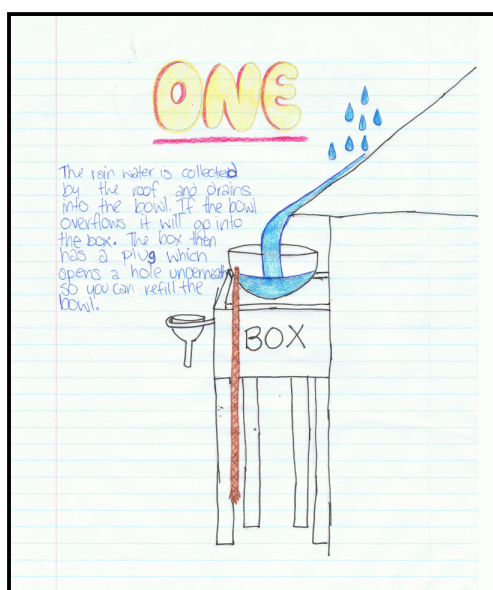 ONE
The rain water is collected
by the roof and drains
into the bowl. If the bowl
overflows it will go into
the box. The box then
has a plug which
opens a hole underneath
so you can refill the
bowl.
BOX